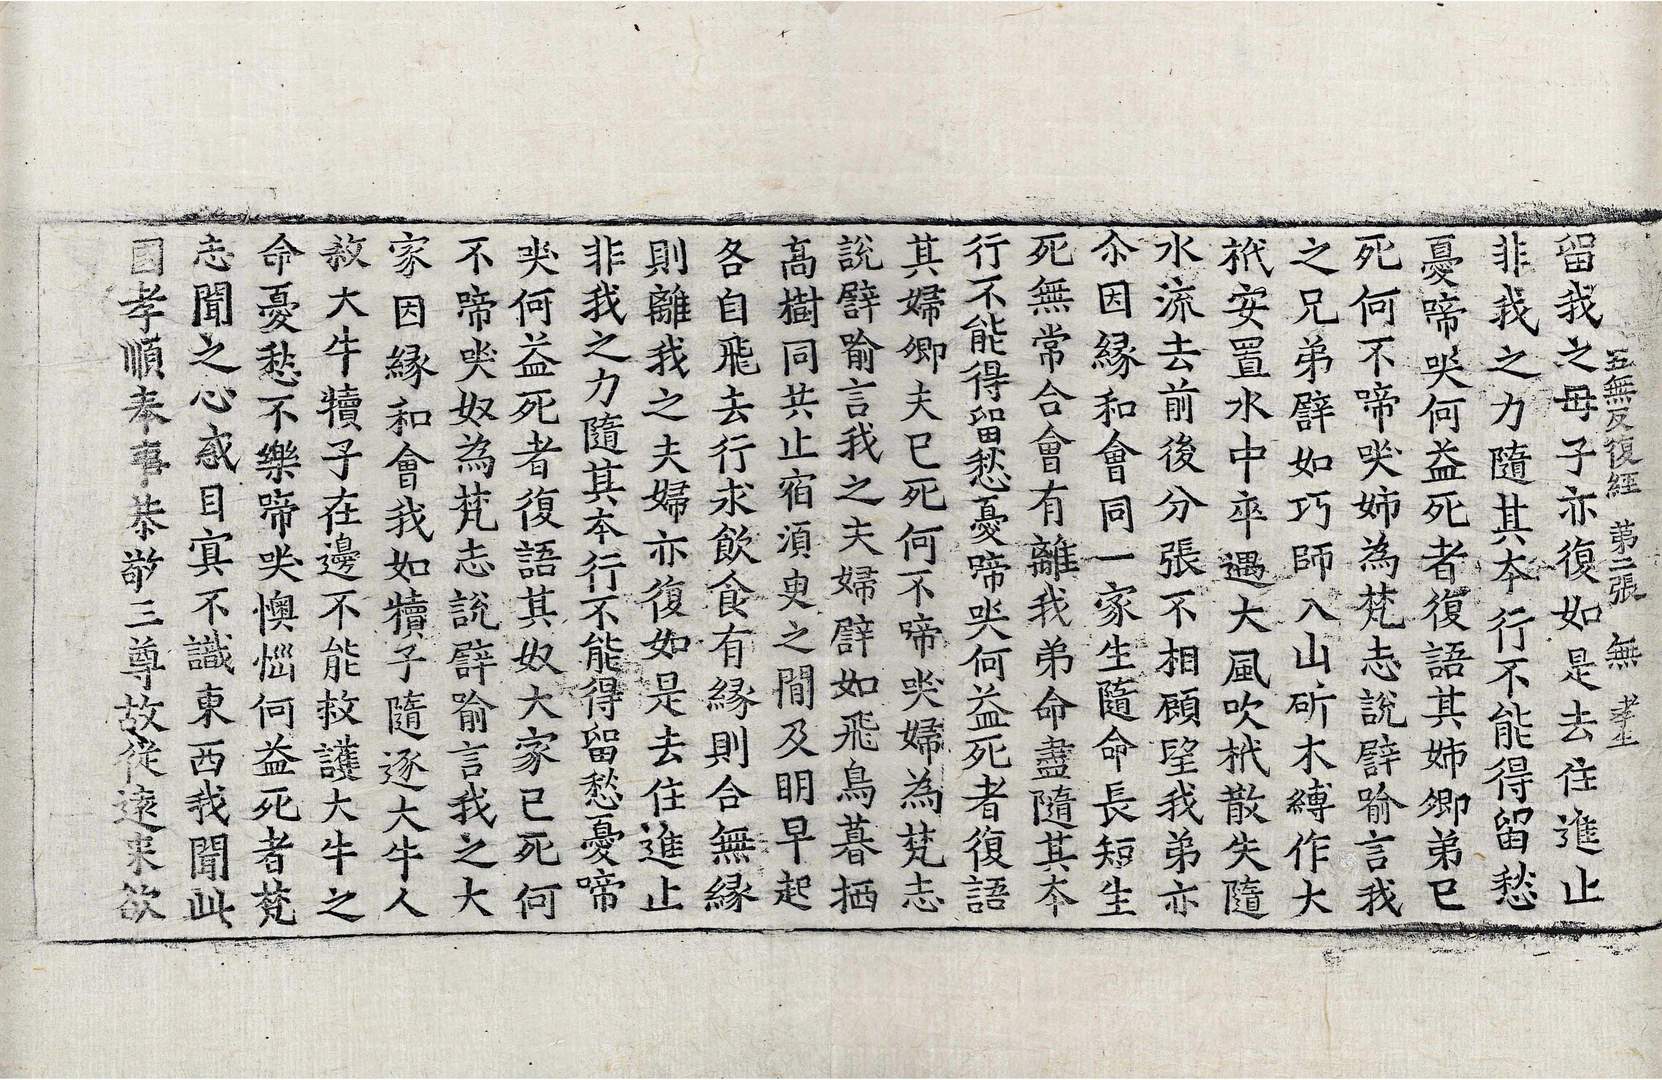 五無反復經 第二張 無 孝生
留我之母子亦復如是去住進止
非我之力隨其本行不能得留愁
憂啼哭何益死者復語其姉卿弟已
死何不啼哭姉為梵志說譬喻言我
之兄弟譬如巧師入山斫木縛作大
栰安置水中卒遇大風吹栰散失隨
水流去前後分張不相顧望我弟亦
尒因緣和會同一家生隨命長短生
死無常合會有離我弟命盡隨其本
行不能得留愁憂啼哭何益死者復語
其婦卿夫已死何不啼哭婦為梵志
說譬喻言我之夫婦譬如飛鳥暮栖
高樹同共止宿須臾之間及明早起
各自飛去行求飲食有緣則合無緣
則離我之夫婦亦復如是去住進止
非我之力隨其本行不能得留愁憂啼
哭何益死者復語其奴大家已死何
不啼哭奴為梵志說譬喻言我之大
家因緣和會我如犢子隨逐大牛人
殺大牛犢子在邊不能救護大牛之
命憂愁不樂啼哭懊惱何益死者梵
志聞之心惑目冥不識東西我聞此
國孝順奉事恭敬三尊故從遠來欲